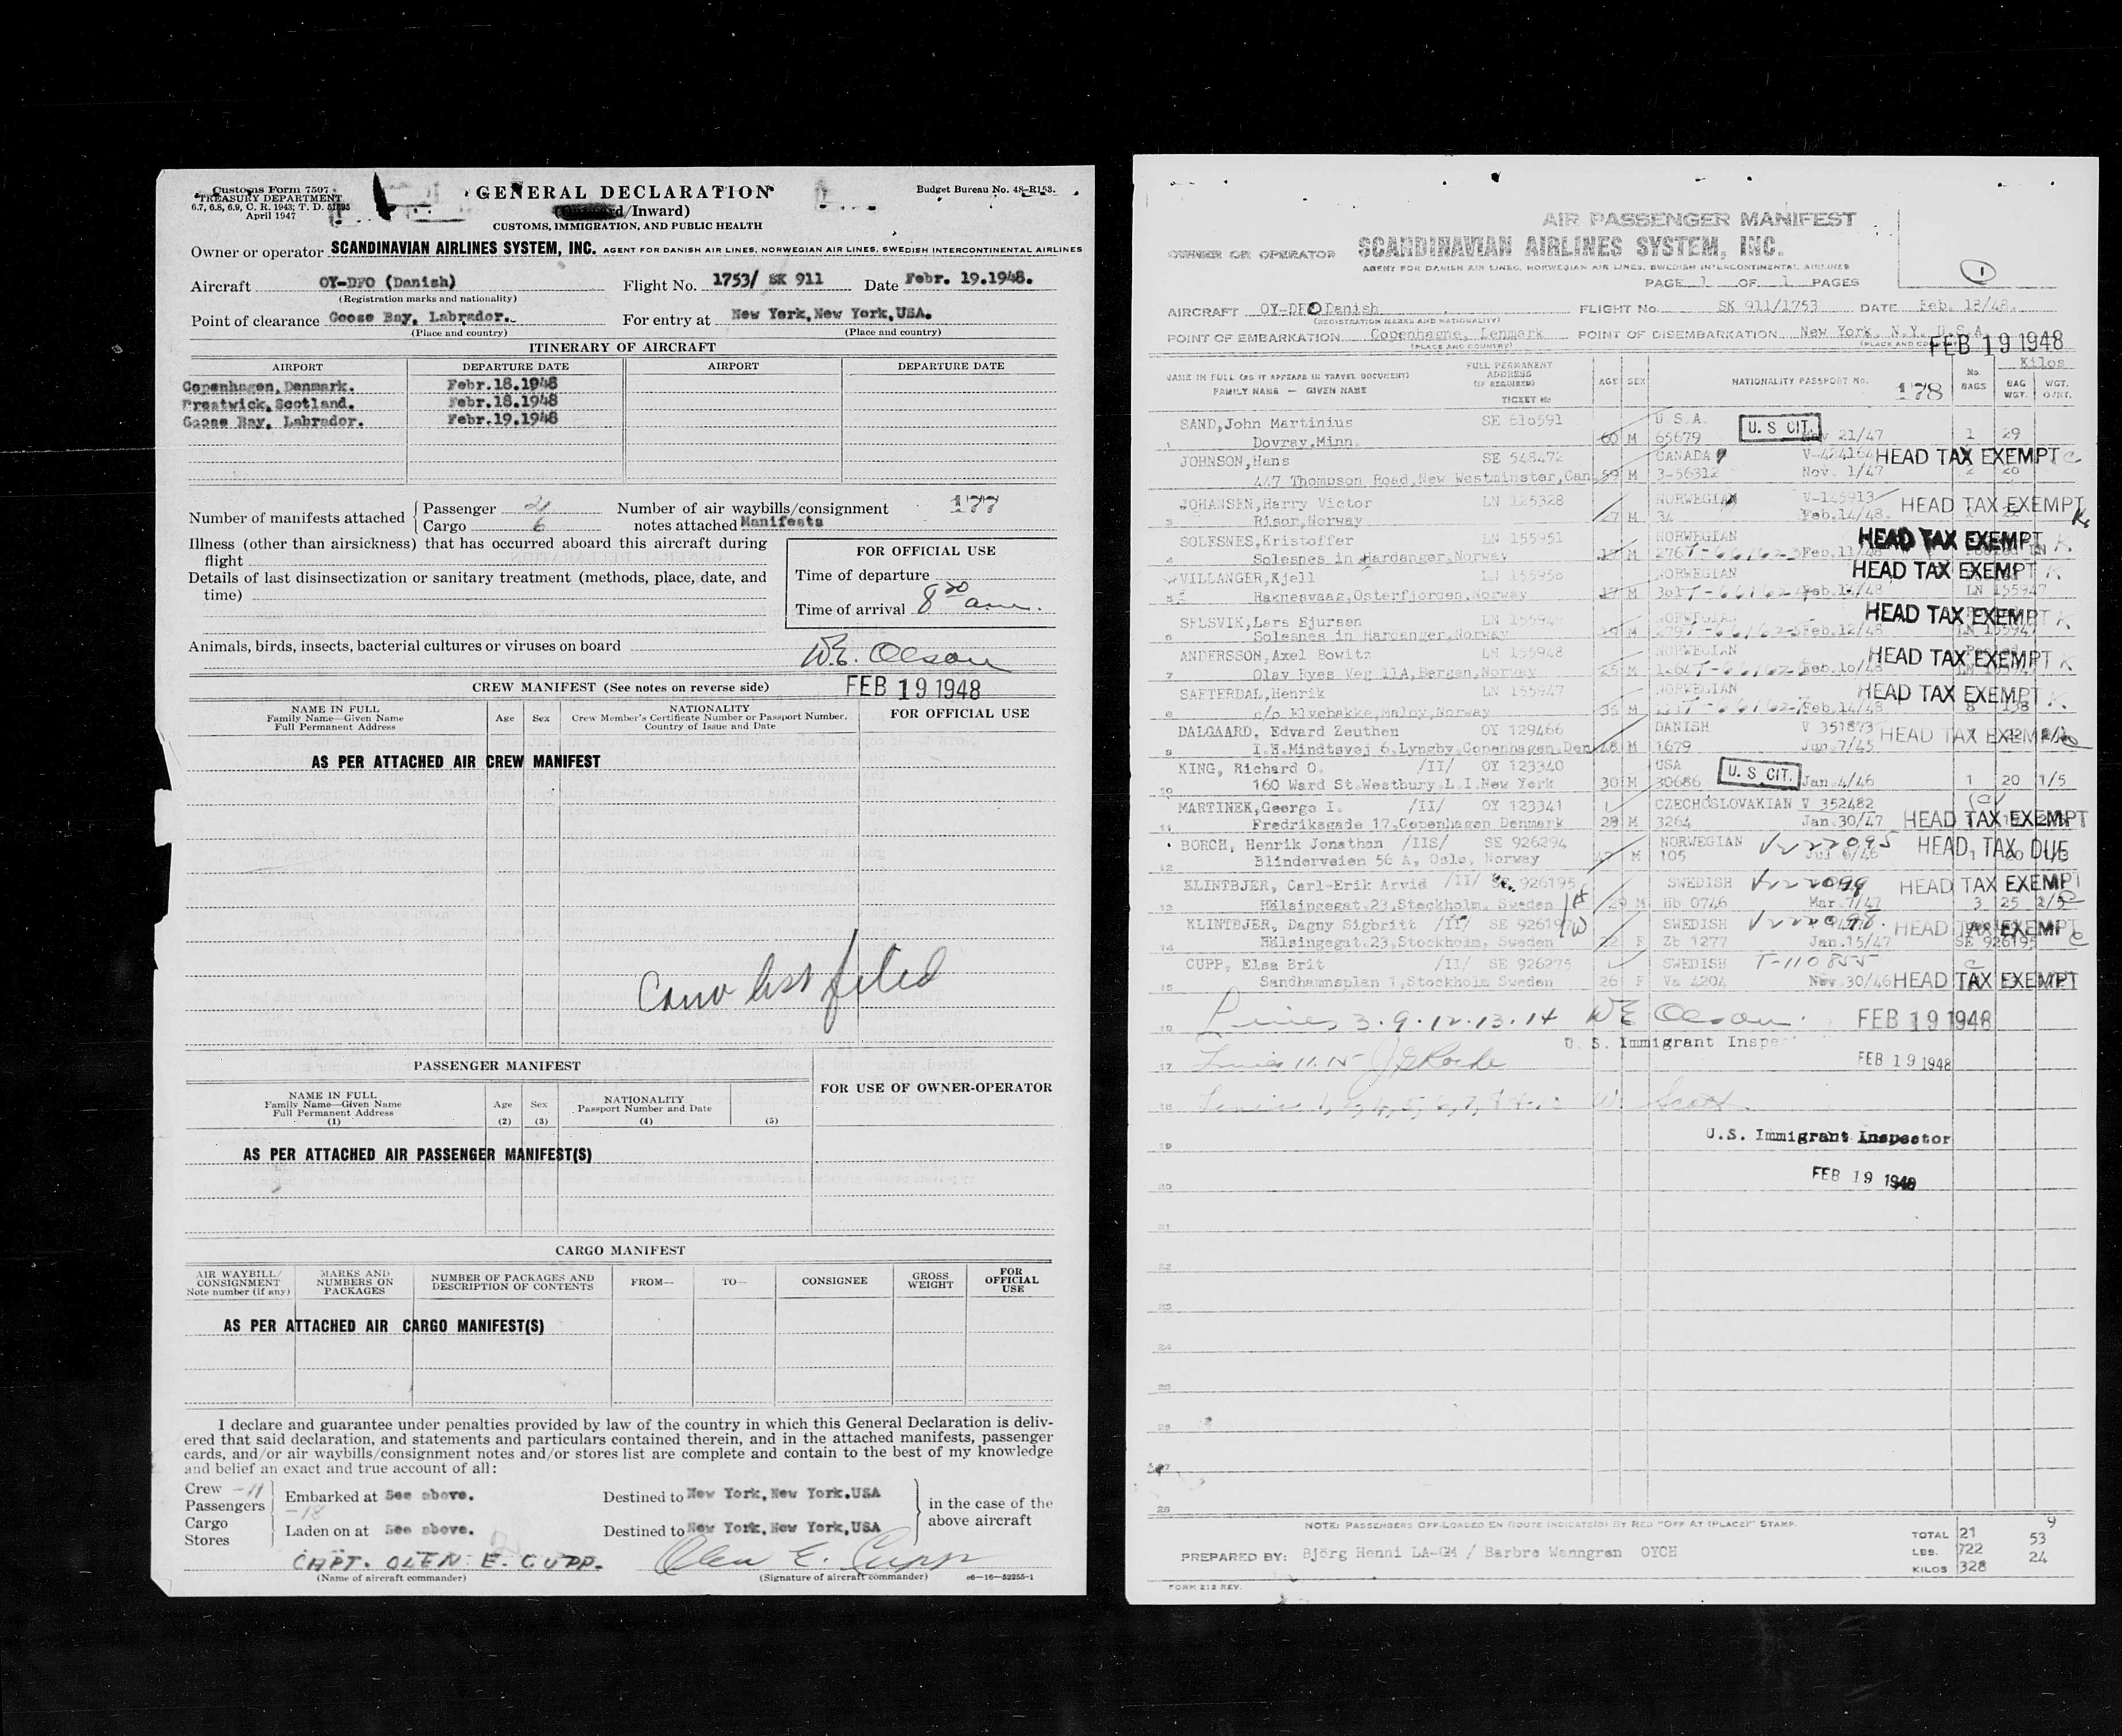 Customs Form 7507
TREASURY DEPARTMENT
6.7, 6.8, 6.9, C. R. 1943; T. D. 51895
April 1947
GENERAL DECLARATION
Budget Bureau No. 48-R153.
/Inward)
CUSTOMS, IMMIGRATION, AND PUBLIC HEALTH
Owner or operator SCANDINAVIAN AIRLINES SYSTEM, INC. AGENT FOR DANISH AIR LINES, NORWEGIAN AIR LINES, SWEDISH INTERCONTINENTAL AIRLINES
Aircraft OY-DFO (Danish) Flight No. 1753/ SK 911 Date Febr. 19.1948.
(Registration marks and nationality)
Point of clearance Goose Bay, Labrador. For entry at New York, New York, USA.
(Place and country) (Place and country)
ITINERARY OF AIRCRAFT
AIRPORT DEPARTURE DATE AIRPORT DEPARTURE DATE
Copenhagen, Denmark. Febr.18.1948
Prestwick, Scotland. Febr.18.1948
Goose Bay, Labrador. Febr.19.1948
Number of manifests attached Passenger 2 Number of air waybills/consignment 177
Cargo 6 notes attached Manifests
Illness (other than airsickness) that has occurred aboard this aircraft during
flight
Details of last disinsectization or sanitary treatment (methods, place, date, and
time)
FOR OFFICIAL USE
Time of departure
Time of arrival 8 30 am.
Animals, birds, insects, bacterial cultures or viruses on board
W.E. Olson
CREW MANIFEST (See notes on reverse side) FEB 19 1948
NAME IN FULL
Family Name—Given Name
Full Permanent Address
Age Sex
NATIONALITY
Crew Member's Certificate Number or Passport Number,
Country of Issue and Date
FOR OFFICIAL USE
AS PER ATTACHED AIR CREW MANIFEST
list filed
PASSENGER MANIFEST
FOR USE OF OWNER-OPERATOR
NAME IN FULL
Family Name—Given Name
Full Permanent Address
(1)
Age
(2)
Sex
(3)
NATIONALITY
Passport Number and Date
(4)
(5)
AS PER ATTACHED AIR PASSENGER MANIFEST(S)
CARGO MANIFEST
AIR WAYBILL/
CONSIGNMENT
Note number (if any)
MARKS AND
NUMBERS ON
PACKAGES
NUMBER OF PACKAGES AND
DESCRIPTION OF CONTENTS
FROM— TO— CONSIGNEE
GROSS
WEIGHT
FOR
OFFICIAL
USE
AS PER ATTACHED AIR CARGO MANIFEST(S)
I declare and guarantee under penalties provided by law of the country in which this General Declaration is deliv-
ered that said declaration, and statements and particulars contained therein, and in the attached manifests, passenger
cards, and/or air waybills/consignment notes and/or stores list are complete and contain to the best of my knowledge
and belief an exact and true account of all:
Crew -11
Passengers -18
Cargo
Stores
Embarked at See above. Destined to New York, New York.USA
Laden on at See above. Destined to New York, New York,USA
in the case of the
above aircraft
CAPT. OLEN E. CUPP. Olen E. Cupp
(Name of aircraft commander) (Signature of aircraft commander) c6—16—52255-1
AIR PASSENGER MANIFEST
OWNER OR OPERATOR SCANDINAVIAN AIRLINES SYSTEM, INC.
AGENT FOR DANISH AIR LINES, NORWEGIAN AIR LINES, SWEDISH INTERCONTINENTAL AIRLINES
1
PAGE 1 OF 1 PAGES
AIRCRAFT OY-DFO Danish FLIGHT No. SK 911/1753 DATE Feb. 18/48.
(REGISTRATION MARKS AND NATIONALITY)
POINT OF EMBARKATION Copenhagne, Denmark POINT OF DISEMBARKATION New York, N.Y. U.S.A.
(PLACE AND COUNTRY)
FEB 19 1948
NAME IN FULL (AS IT APPEARS IN TRAVEL DOCUMENT)
FAMILY NAME — GIVEN NAME
FULL PERMANENT
ADDRESS
(IF REQUIRED)
TICKET No
AGE SEX NATIONALITY PASSPORT No. 178
No. BAGS
Kilos
BAG WGT.
WGT.
SAND,John Martinius SE 610591 U S.A. U. S CIT.
1 Dovray,Minn. 60 M 65679 21/47 1 29
JOHNSON,Hans SE 548472 CANADA V-424164 HEAD TAX EXEMPT C
447 Thompson Road,New Westminster,Can. 59 M 3-56312 Nov. 1/47 20
JOHANSEN,Harry Victor LN 125328 NORWEGIAN V-145913 HEAD TAX EXEMPT
3 Risor,Norway 27 M 34 Feb.14/48.
SOLESNES,Kristoffer LN 155951 NORWEGIAN HEAD TAX EXEMPT K
4 Solesnes in Hardanger,Norway M Feb.11/48
VILLANGER,Kjell LN 155950 NORWEGIAN HEAD TAX EXEMPT K
5 Raknesvaag,Osterfjorden,Norway 17 M LN 155947
SELSVIK,Lars Sjursen HEAD TAX EXEMPT K
6 Solesnes in Hardanger,Norway 19 M Feb.12/48 LN 155947
ANDERSSON,Axel Bowitz LN 155948 NORWEGIAN HEAD TAX EXEMPT K
7 Olav Ryes Veg 11A,Bergen,Norway 25 M Feb.10/48
SAETERDAL,Henrik LN 155947 NORWEGIAN HEAD TAX EXEMPT K
8 c/o Elvebakke,Maloy,Norway 35 M Feb.14/48 8 138
DALGAARD, Edvard Zeuthen OY 129466 DANISH V 351873 HEAD TAX EXEMPT
9 I.H.Mindtsvej 6,Lyngby,Copenhagen,Den 48 M 1679 Jun.7/45
KING, Richard O. /II/ OY 123340 USA U. S CIT.
10 160 Ward St.Westbury L.I.New York 30 M 30686 Jan.4/46 1 20 1/5
MARTINEK,George I. /II/ OY 123341 CZECHOSLOVAKIAN V 352482
11 Fredriksgade 17,Copenhagen Denmark 29 M 3264 Jan.30/47 HEAD TAX EXEMPT
BORCH, Henrik Jonathan /IIS/ SE 926294 NORWEGIAN V-22095 HEAD TAX DUE
12 Blinderveien 56 A, Oslo, Norway M 105
KLINTBJER, Carl-Erik Arvid /II/ SE 926195 SWEDISH V-22099 HEAD TAX EXEMPT
13 Hälsingegat.23,Stockholm, Sweden H 29 M Hb 0746 Mar.7/47 3 25 2/5
KLINTBJER, Dagny Sigbritt /II/ SE 926197 W SWEDISH V-22098 HEAD TAX EXEMPT
14 Hälsingegat.23,Stockholm, Sweden 22 F Zb 1277 Jan.15/47 SE 926195 C
CUPP, Elsa Brit /II/ SE 926275 SWEDISH T-110855
15 Sandhamnsplan 1,Stockholm Sweden 26 F Va 4204 Nov.30/46 HEAD TAX EXEMPT
16 Lines 3.9.12.13.14 WE Olson. FEB 19 1948
U. S. Immigrant Inspe
17 Lines 11.15 FEB 19 1948
18 W. Scott
19 U.S. Immigrant Inspector
20 FEB 19 1948
21
22
23
24
25
26
27
28
NOTE: PASSENGERS OFF-LOADED EN ROUTE INDICATED BY RED "OFF AT (PLACE)" STAMP.
PREPARED BY: Björg Henni LA-GM / Barbro Wenngren OYCH
TOTAL 21 9
LBS. 722 53
KILOS 328 24
FORM 212 REV.